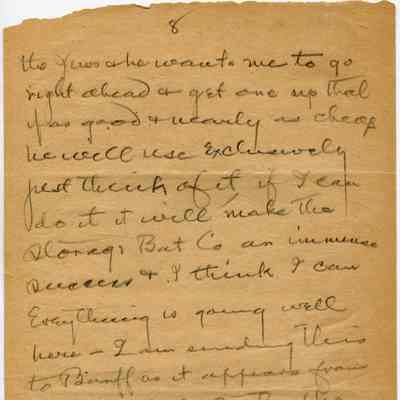 8
the
he wants me to go
right ahead & get one up that
if as good & nearly as cheap
he will use Exclusively
just think of it if I can
do it it will make the
Storage Bat Co an immense
success & I think I can
Everything is going well
here - I am sending this
to Banff as it appears from